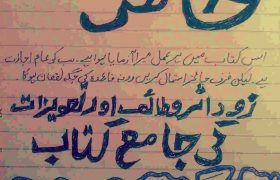 اس کتاب میں ہر عمل میرا آزمایا ہوا ہے۔ سب کو عام اجازت
ہے۔ لیکن صرف جائز استعمال کریں ورنہ فائدہ کی جگہ نقصان ہوگا
زود اثر وظائف اور تعویزات
کی جامع کتاب